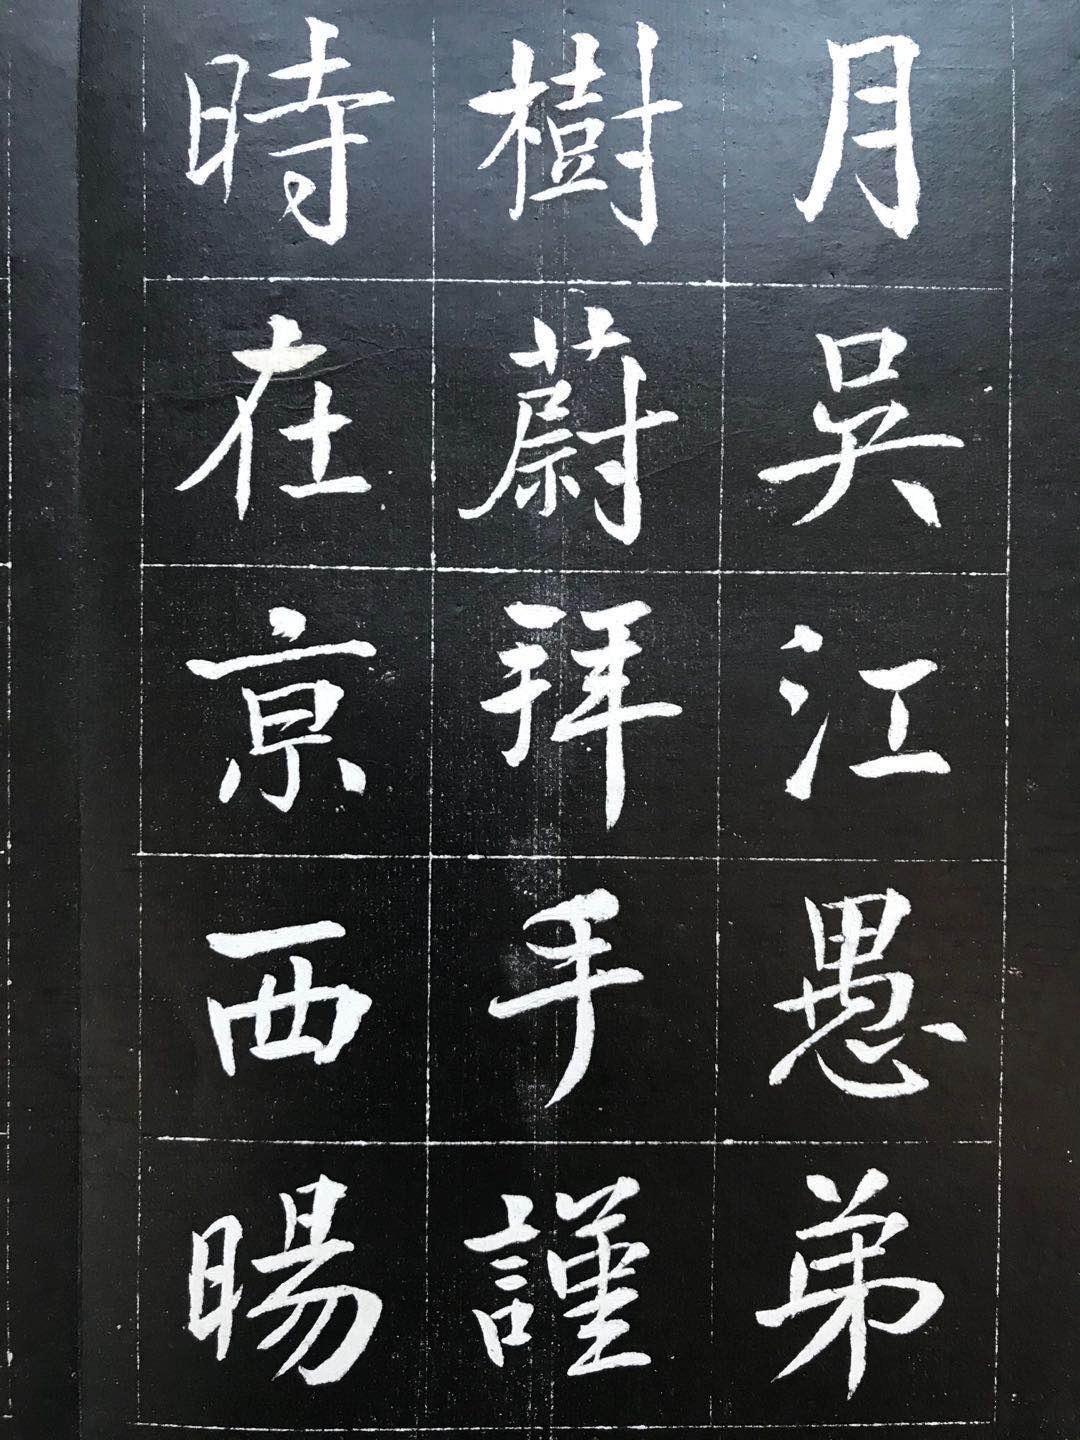 月吳江愚弟
樹蔚拜手謹
時在京西暘